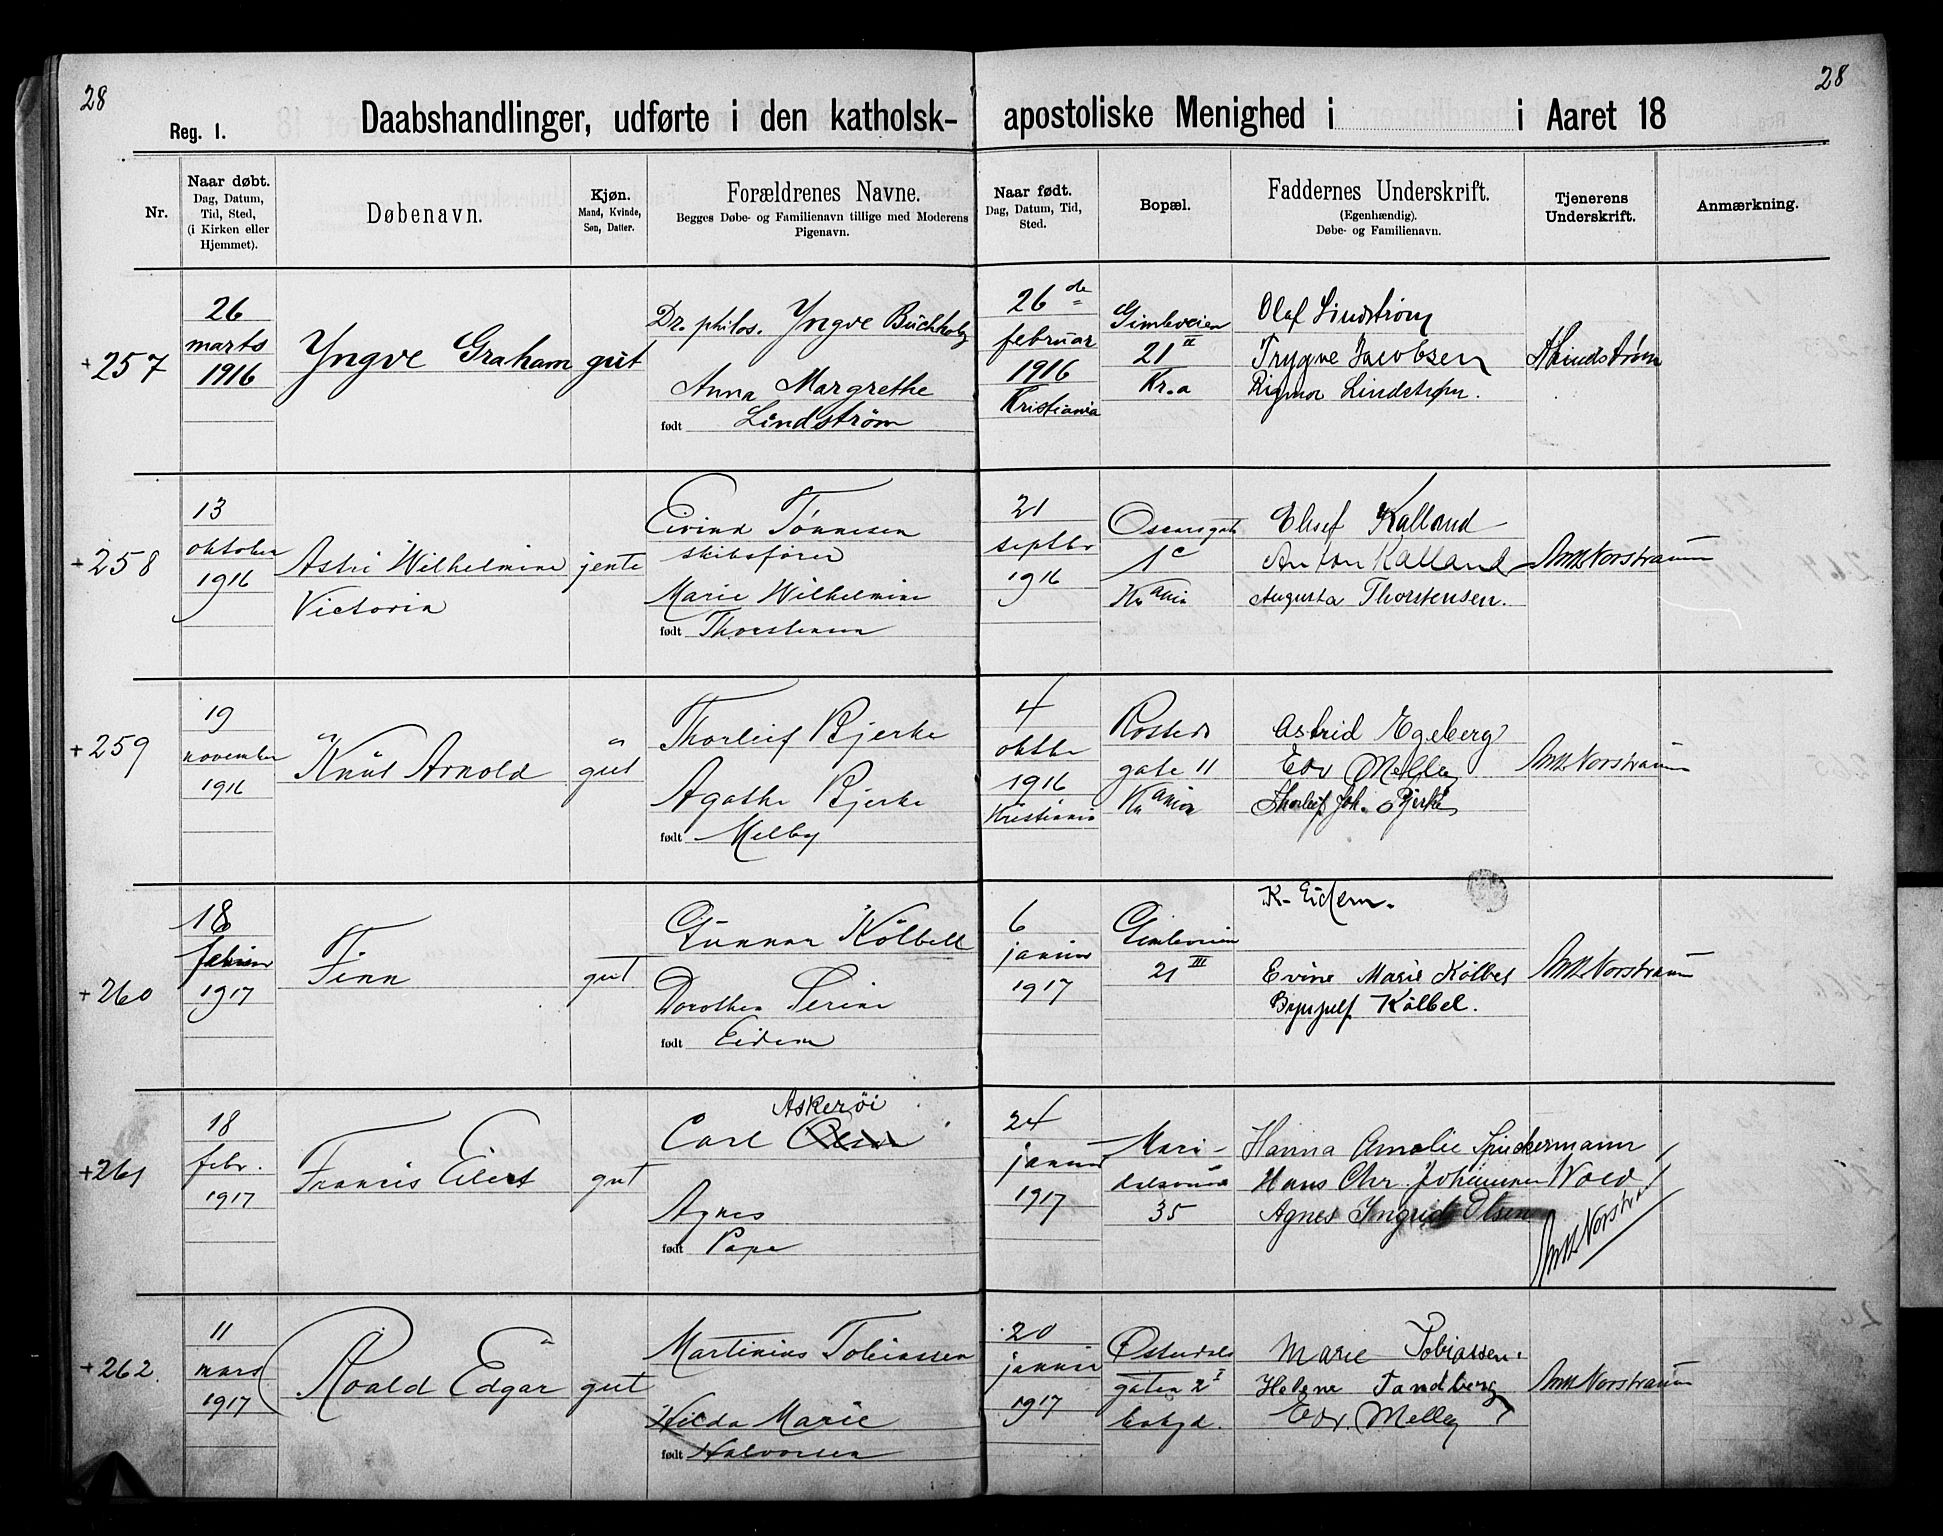 28
28
Reg. 1.
Daabshandlinger, udførte i den katholsk-
apostoliske Menighed i i Aaret 18
Nr.
Naar døbt.
Dag, Datum,
Tid, Sted,
(i Kirken eller
Hjemmet).
Døbenavn.
Kjøn.
Mand, Kvinde,
Søn, Datter.
Forældrenes Navne.
Begges Døbe- og Familienavn tillige med Moderens
Pigenavn.
Naar født.
Dag, Datum, Tid,
Sted.
Bopæl.
Faddernes Underskrift.
(Egenhændig).
Døbe- og Familienavn.
Tjenerens
Underskrift.
Anmærkning.
+257
26
marts
1916
Yngve Graham
gut
Dr. philos. Yngve Buchholz
Anna Margrethe
født Lindstrøm
26 de
februar
1916
Kristiania
Gimleveien
21 II
Kr.a
Olaf Lindstrøm
Trygve Jacobsen
Rigmor Lindstrøm.
Lindstrøm
+258
13
oktober
1916
Astri Wilhelmine
Victoria
jente
Eivind Tønnesen
skibsfører
Marie Wilhelmine
født Thorstensen
21
septbr
1916
Oscarsgate
1c
Kr ania
Elief Kalland
Anton Kalland
Augusta Thorstensen.
Norstraum
+259
19
november
1916
Knut Arnold
gut
Thorleif Bjerke
Agathe Bjerke
født Melby
4
oktbr
1916
Kristiania
Rosteds
gate 11
Kr ania
Astrid Egeberg
Edv Melby
Thorleif Joh. Bjerke
Norstraum
+260
18
februar
1917
Finn
gut
Gunnar Kölbell
Dorothea Serine
født Eidem
6
januar
1917
Gimleveien
21 III
K. Eidem.
Evine Marie Kölbel
Brynjulf Kölbel.
Norstraum
+261
18
febr.
1917
Francis Eilert
gut
Askerøi
Carl Olsen
Agnes
født Pape
24
januar
1917
Mari-
dalsveien
35
Hanna Amalie Spuckermann
Hans Chr. Johannesen Wold
Agnes Ingrid Olsen
Norstraum
+262
11
mars
1917
Roald Edgar
gut
Martinius Tobiassen
Hilda Marie
født Halvorsen
20
januar
1917
Østerdals
gaten 2 I
Marie Tobiassen.
Helene Tandberg
Edv. Melby
Norstraum